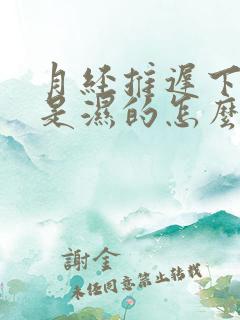 月经推遲下
是濕的怎麼
謝金
未任同意禁止转载